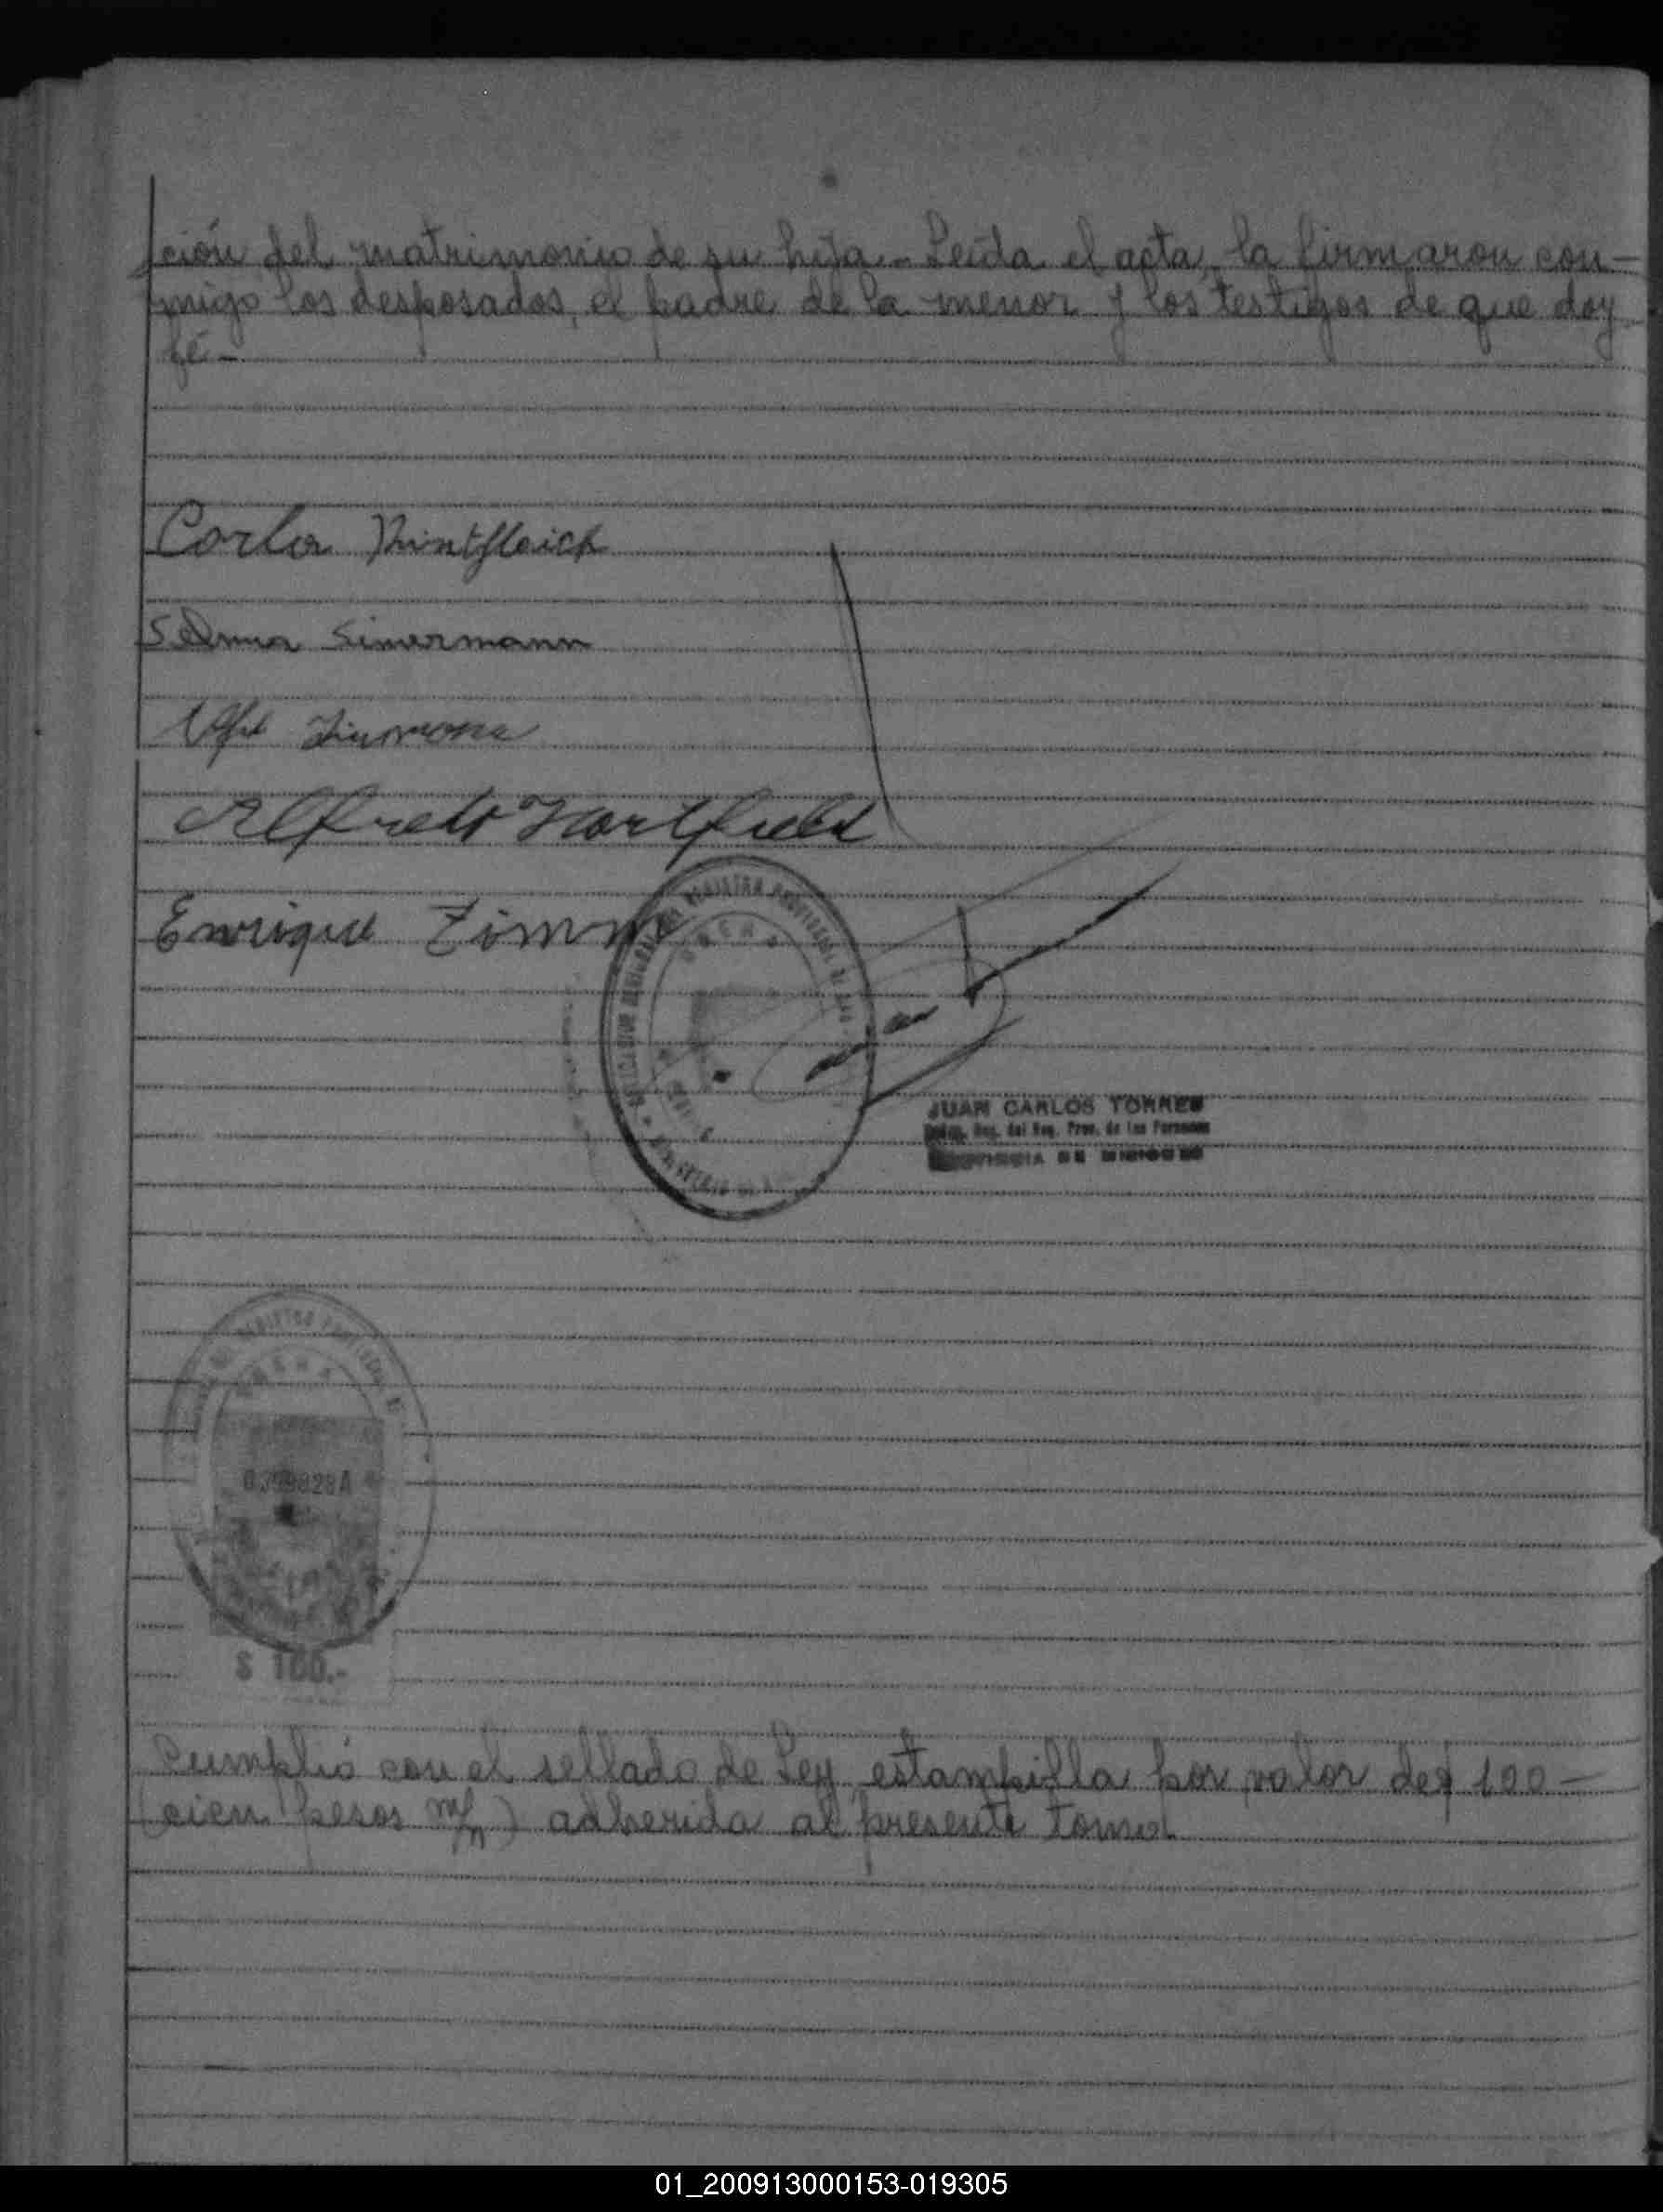 ción del matrimonio de su hija.- Leída el acta, la firmaron con-
migo los desposados, el padre de la menor y los testigos de que doy
fé -
Carlos Rintfleich
Selma Simermann
Alfredo Hartfield
Enrique Zimm
JUAN CARLOS TORRES
del Reg. Prov. de las Personas
0399828A
$ 100.-
Cumplió con el sellado de Ley, estampilla por valor de $ 100 -
cien pesos m/n) adherida al presente tomo
01_200913000153-019305